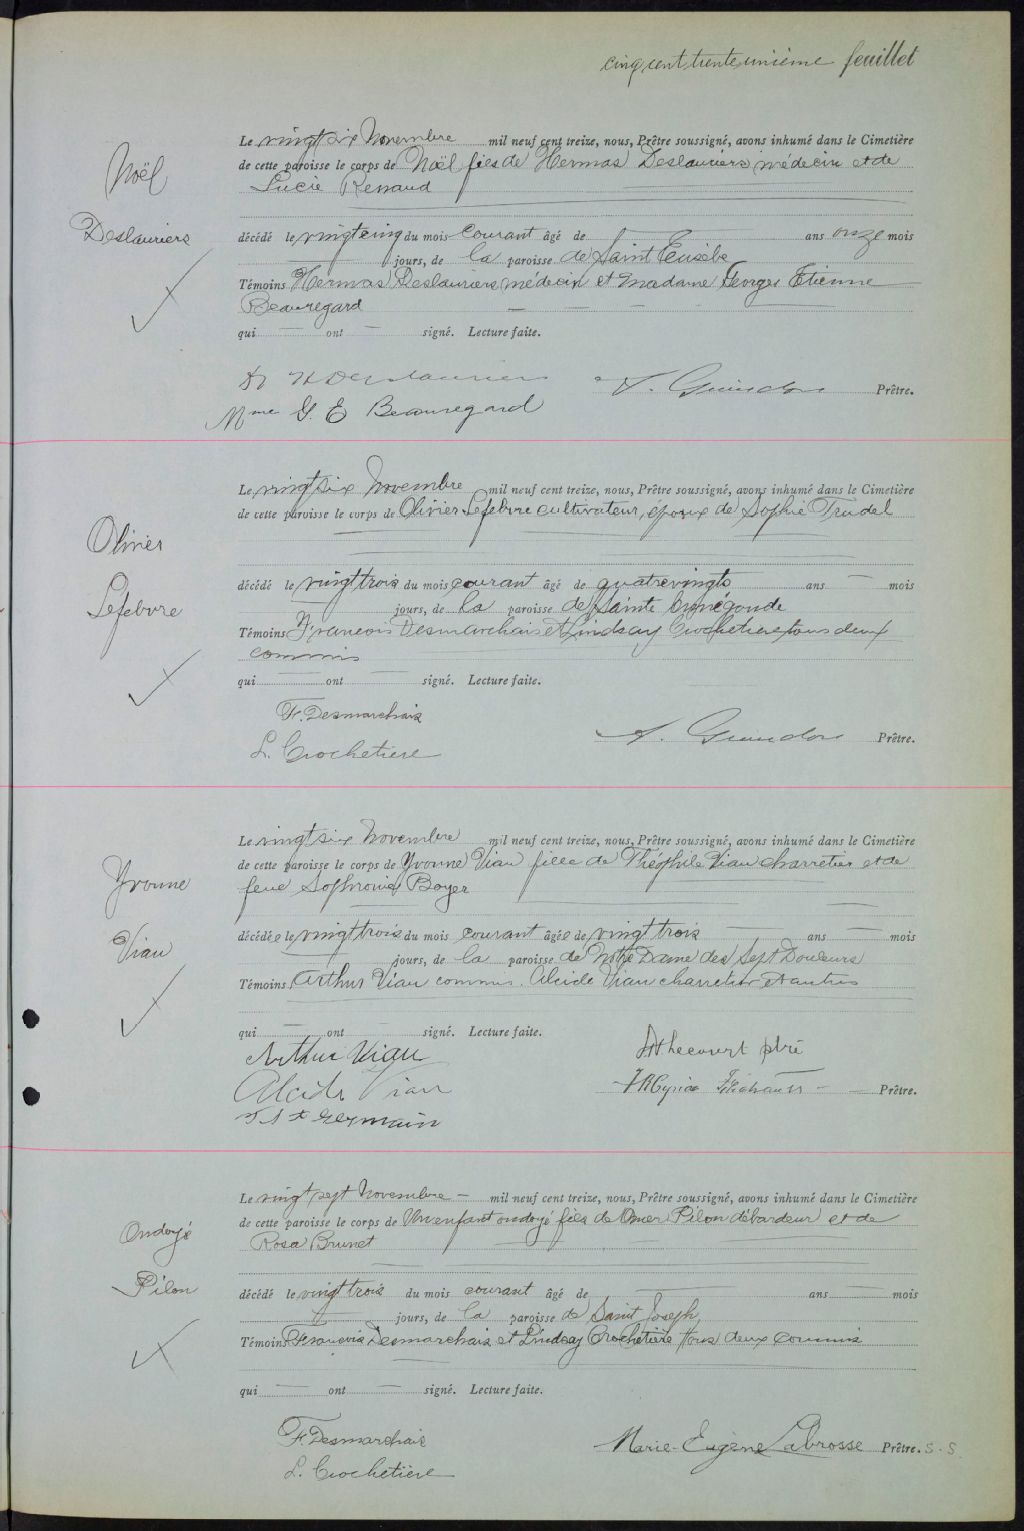 cinq cent trente unième feuillet
Noël
Deslauriers
Le vingt six Novembre mil neuf cent treize, nous, Prêtre soussigné, avons inhumé dans le Cimetière
de cette paroisse le corps de Noël fils de Hermas Deslauriers médecin et de
Lucie Renaud
décédé le vingt cinq du mois courant âgé de ans onze mois
jours, de la paroisse de Saint Eusèbe
Témoins Hermas Deslauriers médecin et madame Georges Etienne
Beauregard
qui ont signé. Lecture faite.
Dr H Deslauriers
Mme G. E Beauregard
A. Guindon Prêtre.
Olivier
Lefebvre
Le vingt six Novembre mil neuf cent treize, nous, Prêtre soussigné, avons inhumé dans le Cimetière
de cette paroisse le corps de Olivier Lefebvre cultivateur, époux de Sophie Trudel
décédé le vingt trois du mois courant âgé de quatre vingts ans mois
jours, de la paroisse de Sainte Cunégonde
Témoins François Desmarchais et Lindsay Crochetiere tous deux
commis
qui ont signé. Lecture faite.
Fr. Desmarchais
L. Crochetiere
A. Guindon Prêtre.
Yvonne
Viau
Le vingt six Novembre mil neuf cent treize, nous, Prêtre soussigné, avons inhumé dans le Cimetière
de cette paroisse le corps de Yvonne Viau fille de Théophile Viau charretier et de
feue Sophronie Boyer
décédée le vingt trois du mois courant âgée de vingt trois ans mois
jours, de la paroisse de Notre Dame des Sept Douleurs
Témoins Arthur Viau commis. Alcide Viau charretier et autres
qui ont signé. Lecture faite.
Arthur Viau
Alcide Viau
St Germain
ptre
Prêtre.
Ondoyé
Pilon
Le vingt sept Novembre mil neuf cent treize, nous, Prêtre soussigné, avons inhumé dans le Cimetière
de cette paroisse le corps de Un enfant ondoyé fils de Omer Pilon débardeur et de
Rosa Brunet
décédé le vingt trois du mois courant âgé de ans mois
jours, de la paroisse de Saint Joseph
Témoins François Desmarchais et Lindsay Crochetière tous deux commis
qui ont signé. Lecture faite.
F. Desmarchais
L. Crochetière
Marie-Eugène Labrosse Prêtre. S.S.